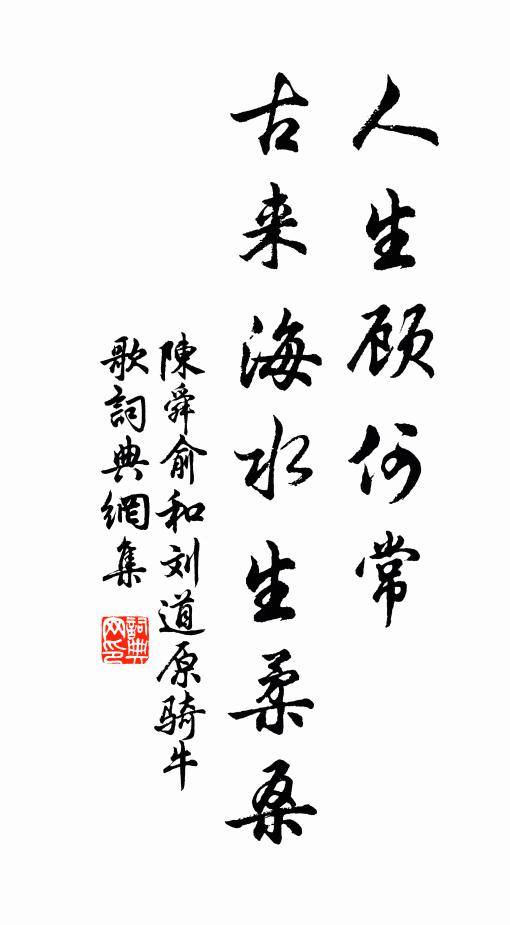 人生顾何常
古来海水生柔桑
陳舜俞和刘道原骑牛
歌詞典網集
詞典网印